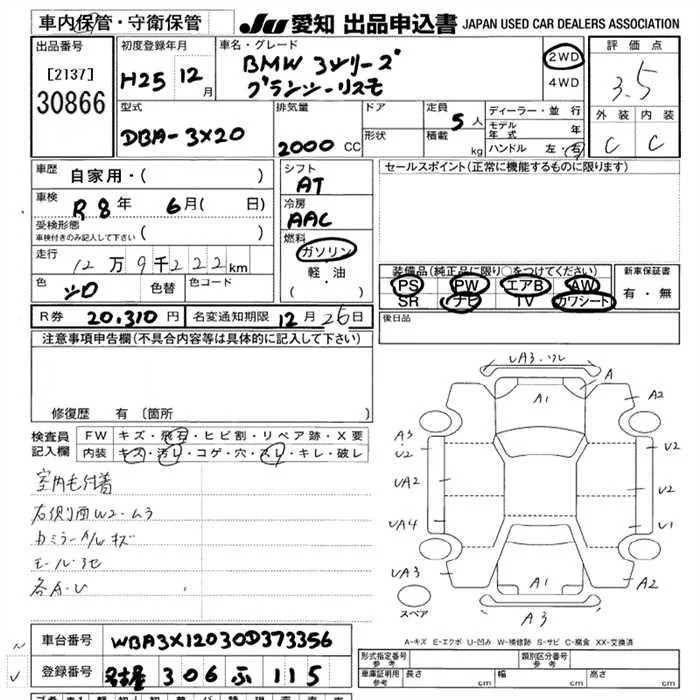 車内保管・守衛保管 JU愛知 出品申込書 JAPAN USED CAR DEALERS ASSOCIATION
出品番号 [2137] 30866
初度登録年月 H25 12月
車名・グレード BMW 3シリーズ グランツーリスモ
2WD 4WD
評価点 3.5
外装 C 内装 C
型式 DBA-3X20
排気量 2000 CC
ドア 形状
定員 5人 積載 kg
ディーラー・並行
モデル年式 年
ハンドル 左・右
車歴 自家用・( )
車検 R8年 6月( 日)
受検形態 車検付きのみ記入して下さい ( )
走行 12万9千222km
色 シロ 色替 色コード
シフト AT
冷房 AAC
燃料 ガソリン 軽・油 (・ )
セールスポイント(正常に機能するものに限ります)
装備品(純正品に限り○をつけてください)
PS PW エアB AW
SR ナビ TV カワシート
新車保証書 有・無
R券 20,310円 名変通知期限 12月26日
後日品
注意事項申告欄(不具合内容等は具体的に記入して下さい)
修復歴 有 (箇所
検査員記入欄
FW キズ・飛石・ヒビ割・リペア跡・X要
内装 キズ・汚レ・コゲ・穴・スレ・キレ・破レ
室内毛付着
右側面W2・ムラ
カミラーA/Wキズ
モール
各A・U
UA3・ワレ
A
A1
A2
A3
U2
U2
UA2
U2
UA4
U1
UA3
A1
A2
A3
スペア
A-キズ E-エクボ U-凹み W-補修跡 S-サビ C-腐食 XX-交換済
車台番号 WBA3X12030D373356
登録番号 名古屋 306 ふ 115
形式指定番号 参考 類別区分番号 参考
車庫証明用 参考 長さ cm 幅 cm 高さ cm